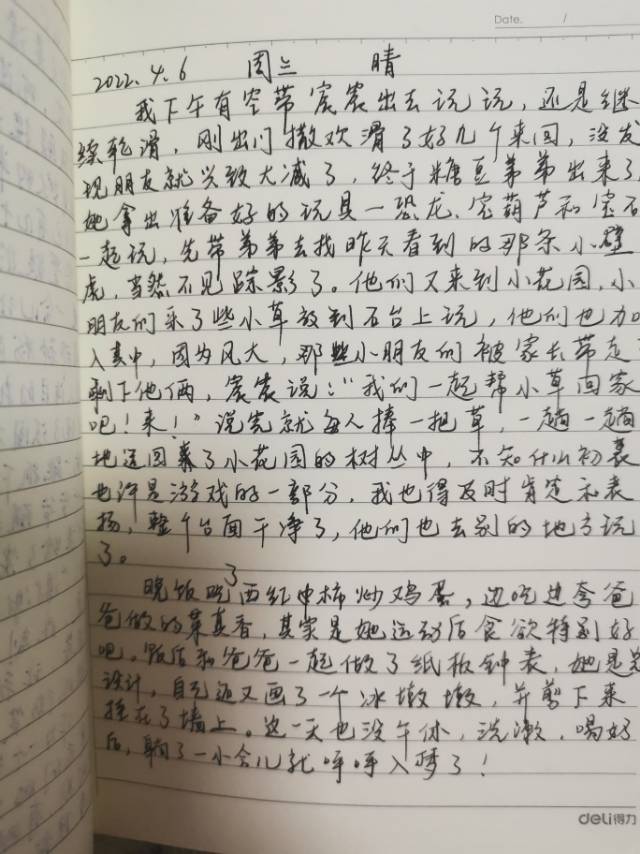 Date. /
2022.4.6 周三 晴
我下午有空带宸宸出去玩玩，还是继
续轮滑，刚出门撒欢滑了好几个来回，没发
现朋友就兴致大减了，终于糖豆弟弟出来了
她拿出准备好的玩具一恐龙、宝葫芦和宝石
一起玩，先带弟弟去找昨天看到的那条小壁
虎，当然不见踪影了。他们又来到小花园，小
朋友们采了些小草放到石台上玩，他们也加
入其中，因为风大，那些小朋友们被家长带走
剩下他俩，宸宸说：“我们一起帮小草回家
吧！来！”说完就每人捧一把草，一趟一趟
地送回来了小花园的树丛中，不知什么初衷
也许是游戏的一部分，我也得及时肯定和表
扬，整个台面干净了，他们也去别的地方玩
了。
晚饭吃了西红柿炒鸡蛋，边吃边夸爸
爸做的菜真香，其实是她运动后食欲特别好
吧。饭后和爸爸一起做了纸板钟表，她是总
设计，自己又画了一个冰墩墩，并剪下来
挂在了墙上。这一天也没午休，洗漱，喝好
后，躺了一小会儿就呼呼入梦了！
deli得力